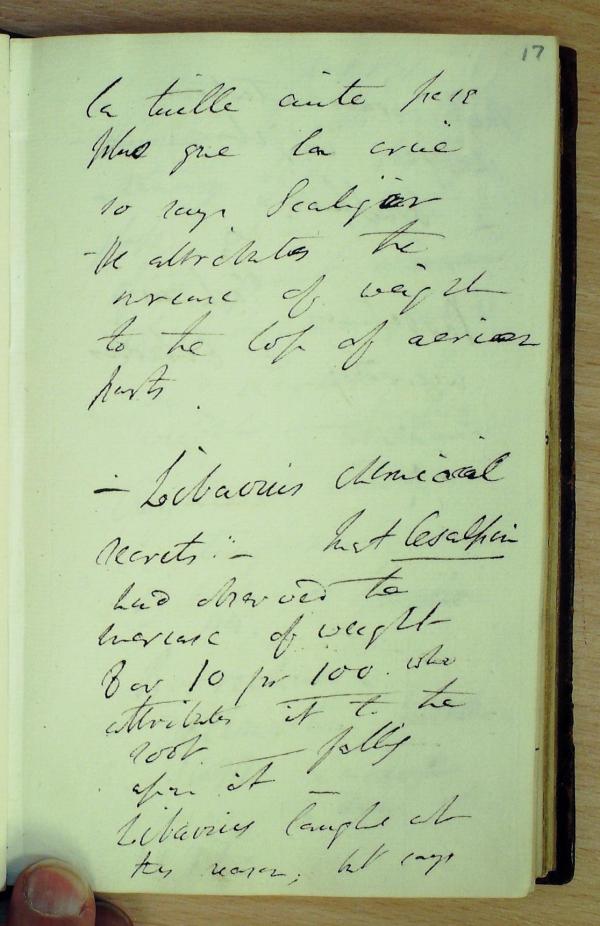 17
la tuille cuite pese
plus que la crüe
so says Scaliger
- He attributes the
increase of weight
to the loss of aerian
parts.
- Libavius chemical
secrets. - that Cesalpin
had observed the
increase of weight
8 or 10 pr 100. who
attributes it to the
soot falling
upon it -
Libavius laughs at
this reason, but says